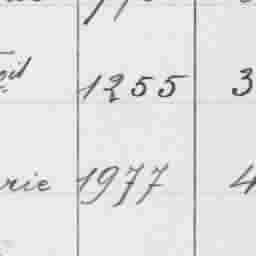 1255 3
rie 1977 4